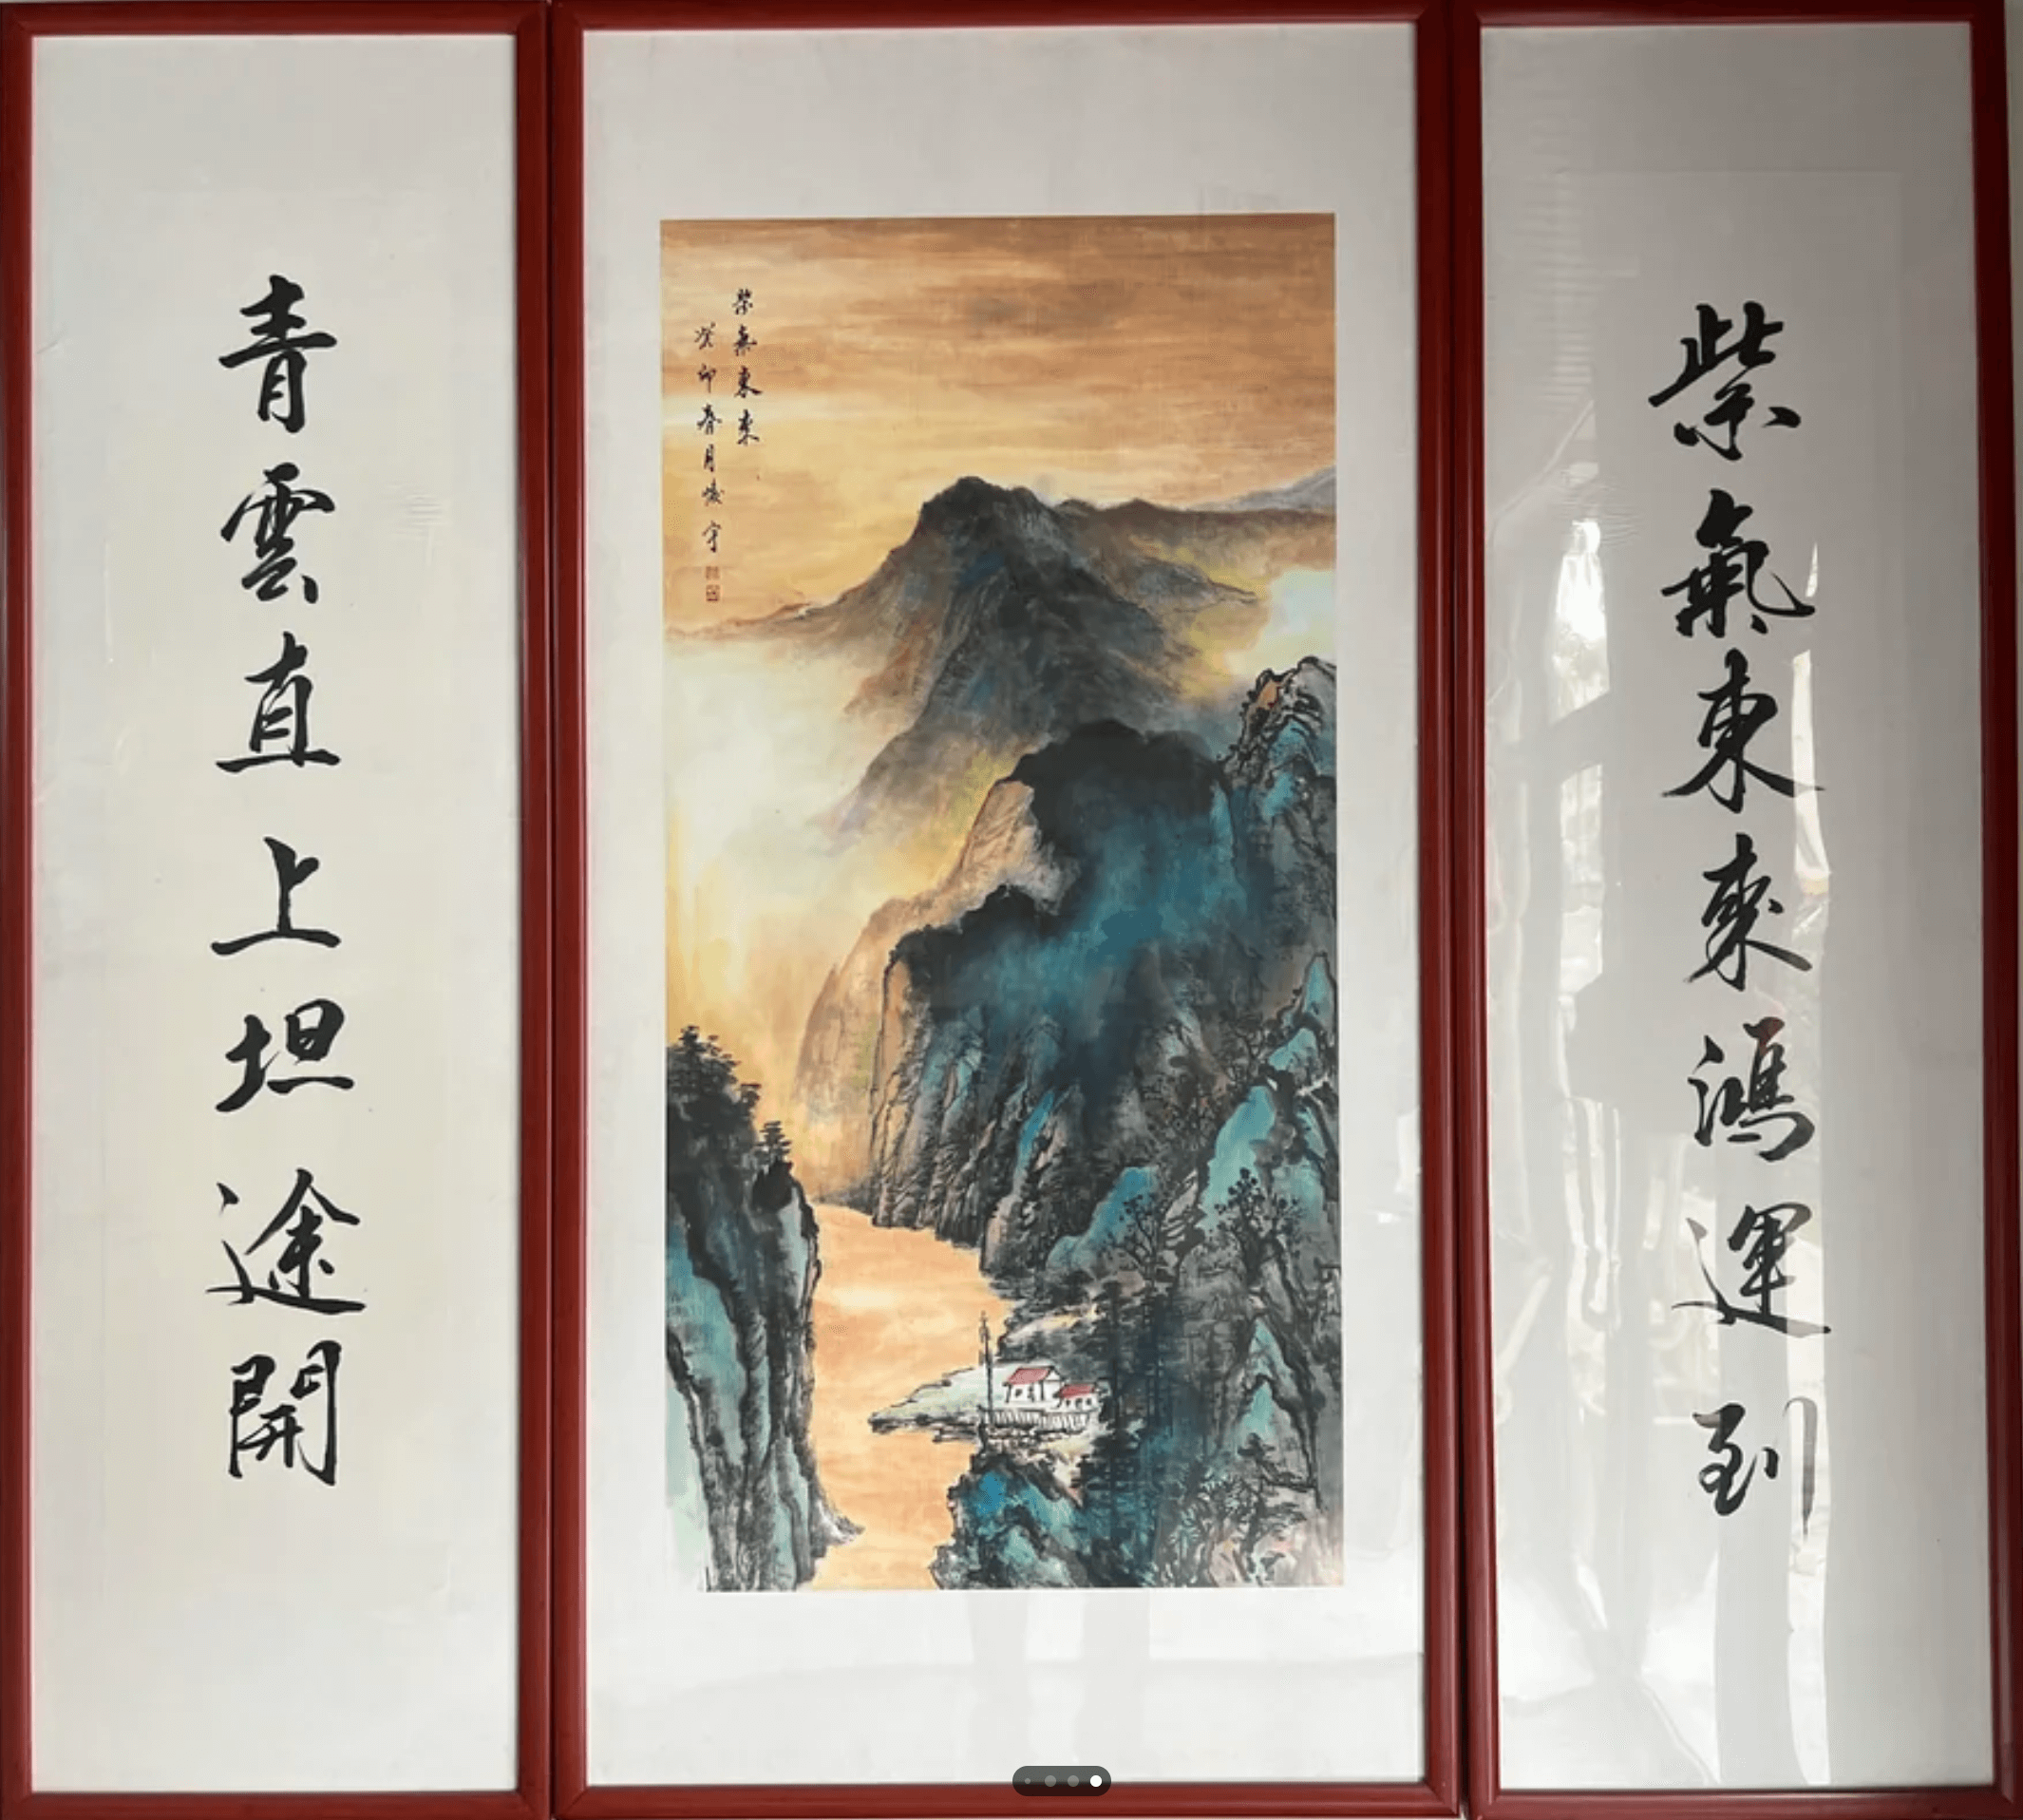 紫氣東來鴻運到
紫氣東來
癸卯春月
青雲直上坦途開